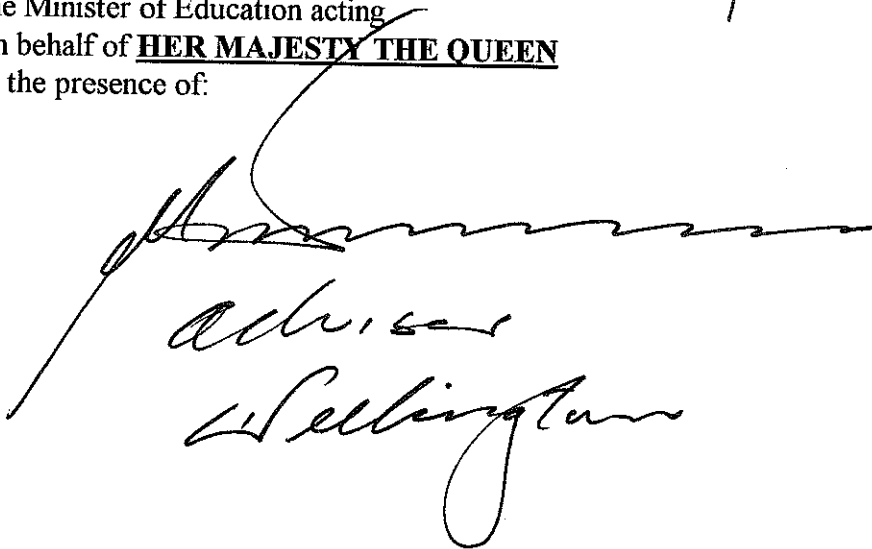 e Minister of Education acting
n behalf of HER MAJESTY THE QUEEN
the presence of:
adviser
Wellington